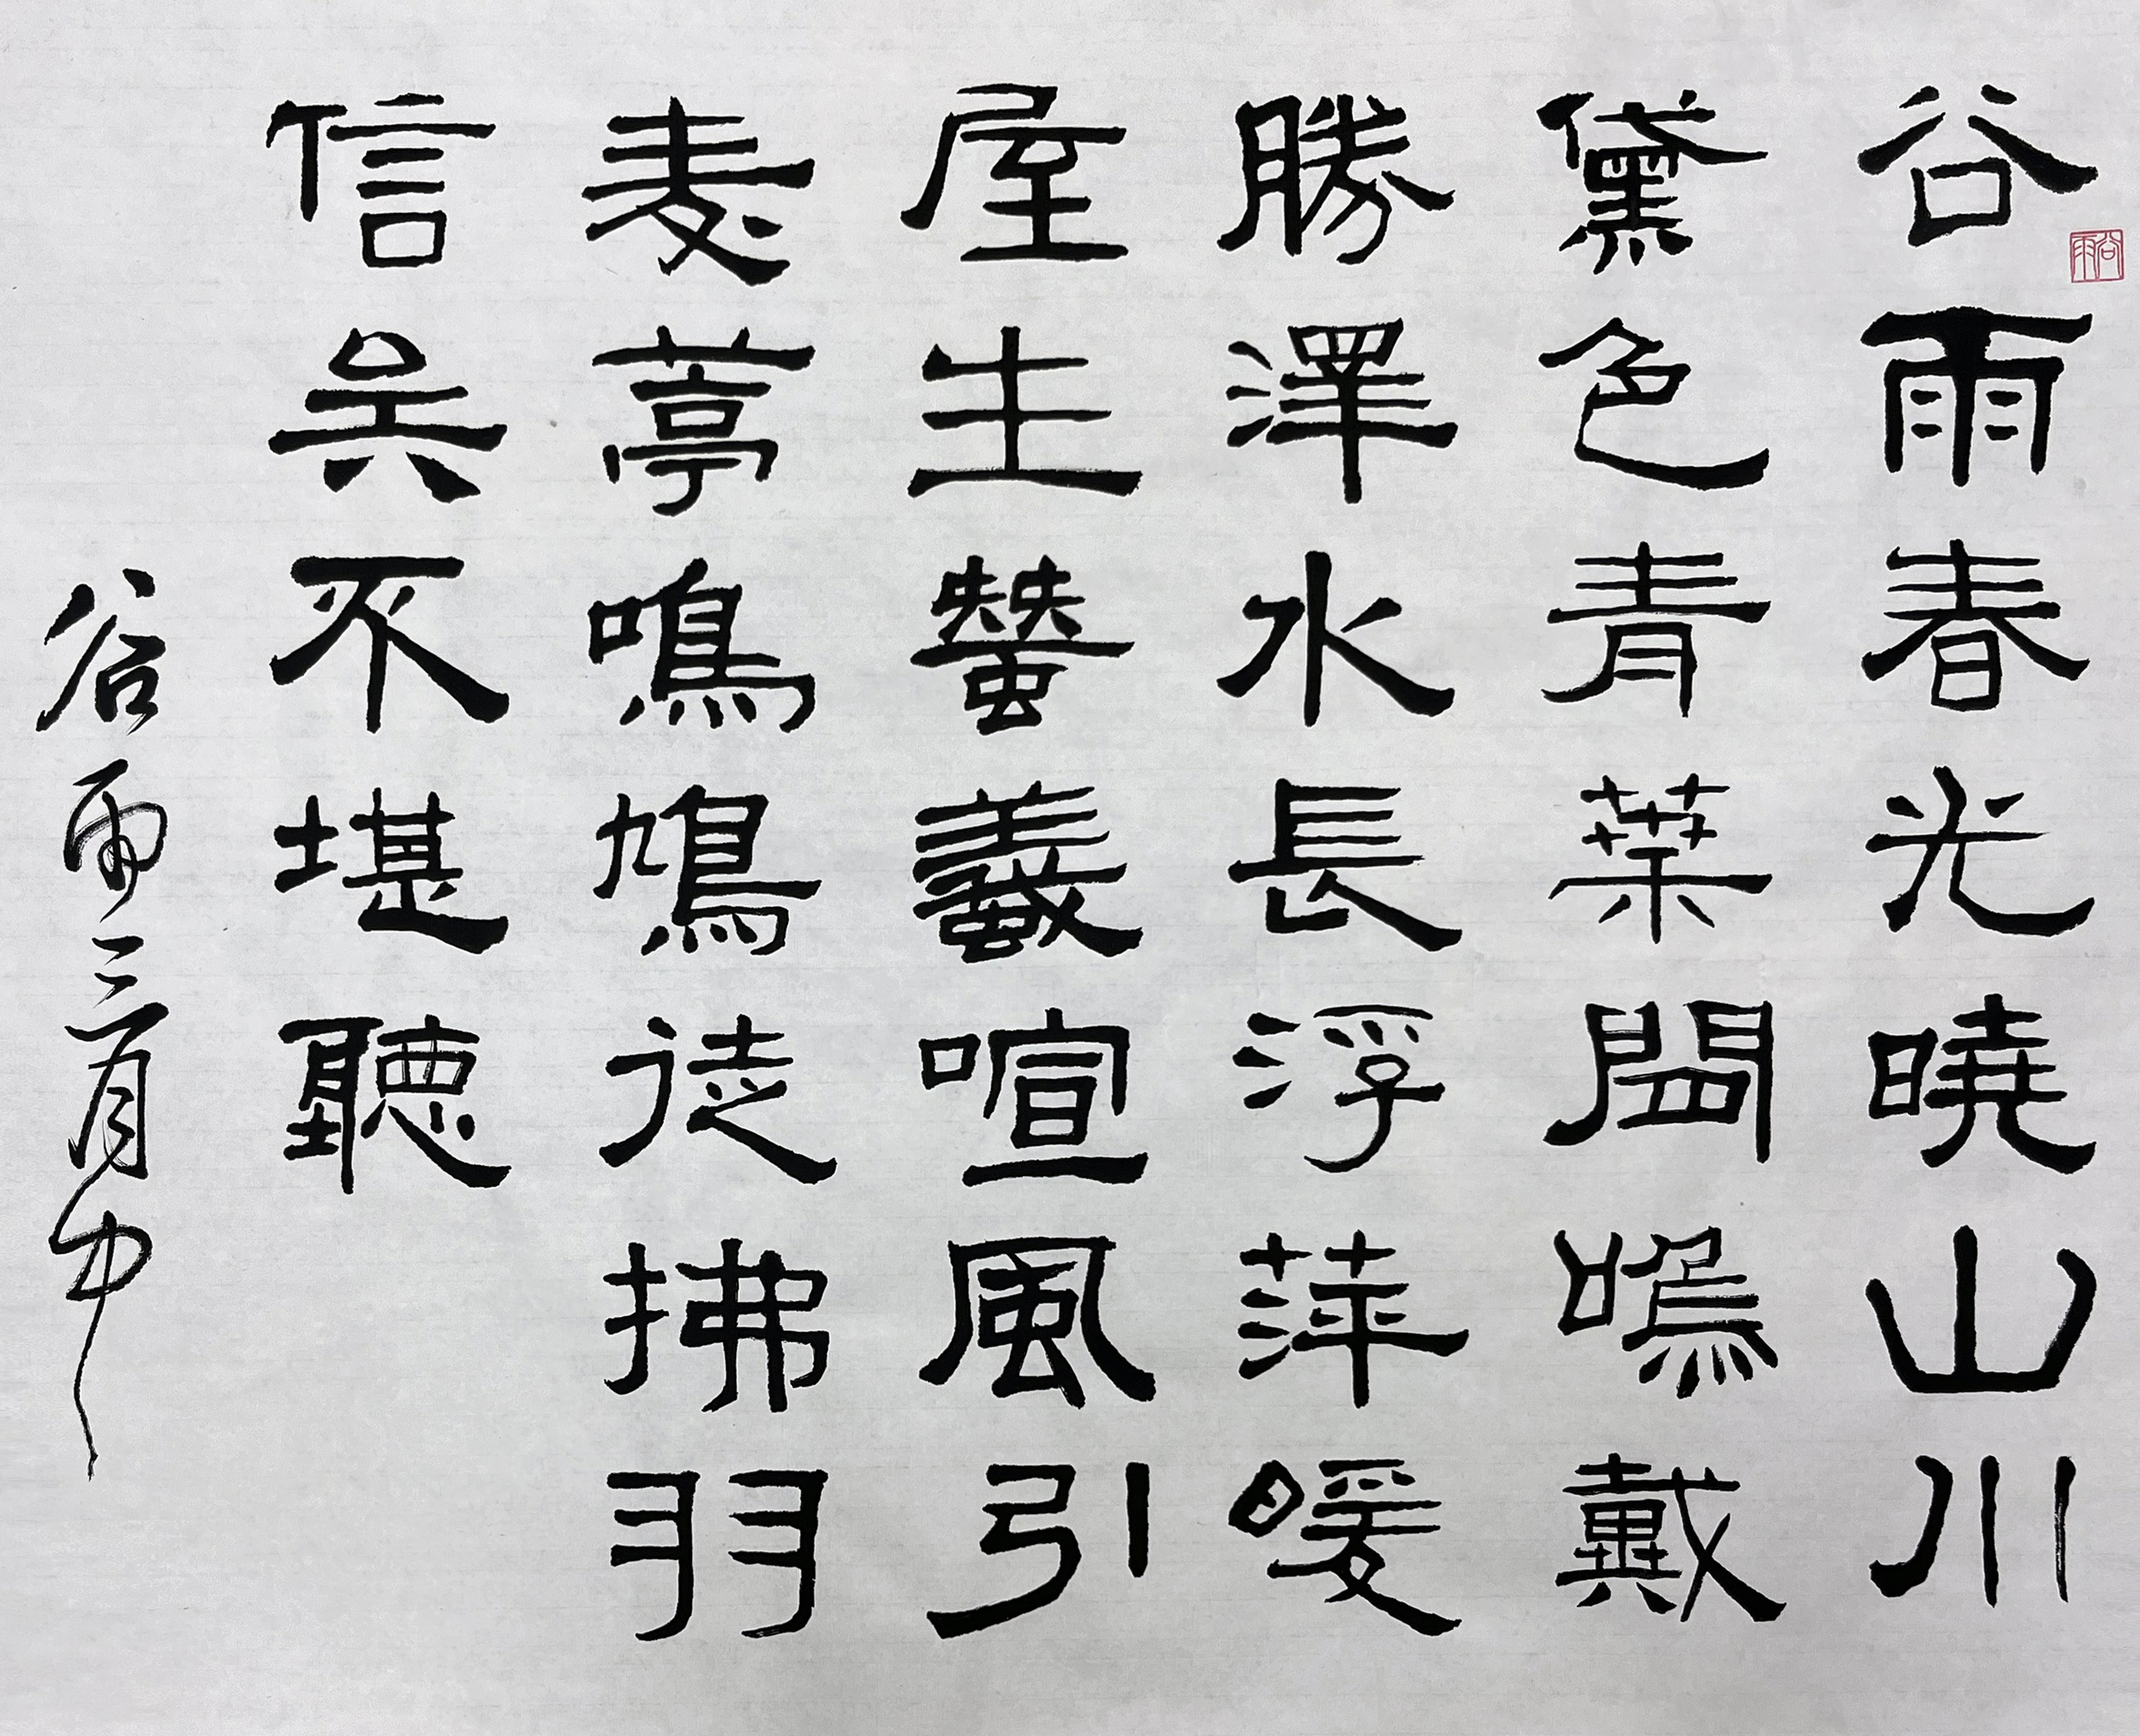 谷雨
谷雨春光曉山川
黛色青葉間鳴戴
勝澤水長浮萍暖
屋生蠶蟻喧風引
麥葶鳴鳩徒拂羽
信矣不堪聽
谷雨三月中